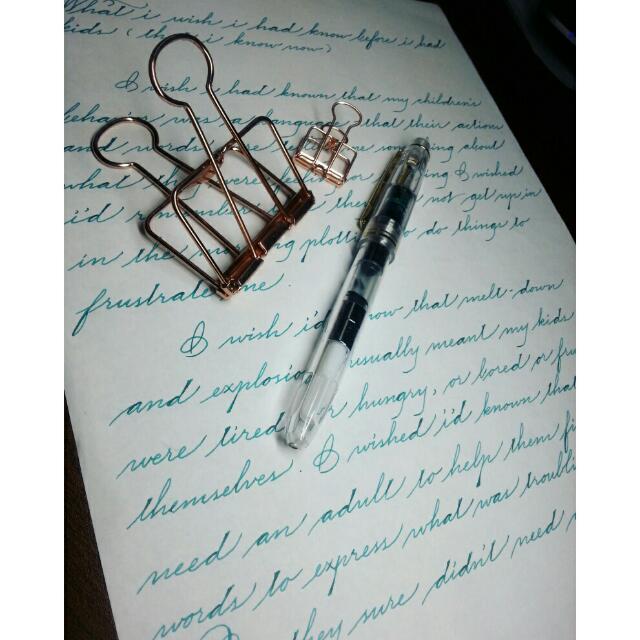 What i wish i had know before i had
kids ( that i know now )
I wish i had known that my children's
behavior was a language that their actions
and words were me something about
what they were feeling or I wished
i'd remember the not get up in
in the morning plotting to do things to
frustrate me.
I wish i'd know that melt-down
and explosions usually meant my kids
were tired or hungry, or bored or
themselves. I wished i'd known that
need an adult to help them
words to express what was
they sure didn't need